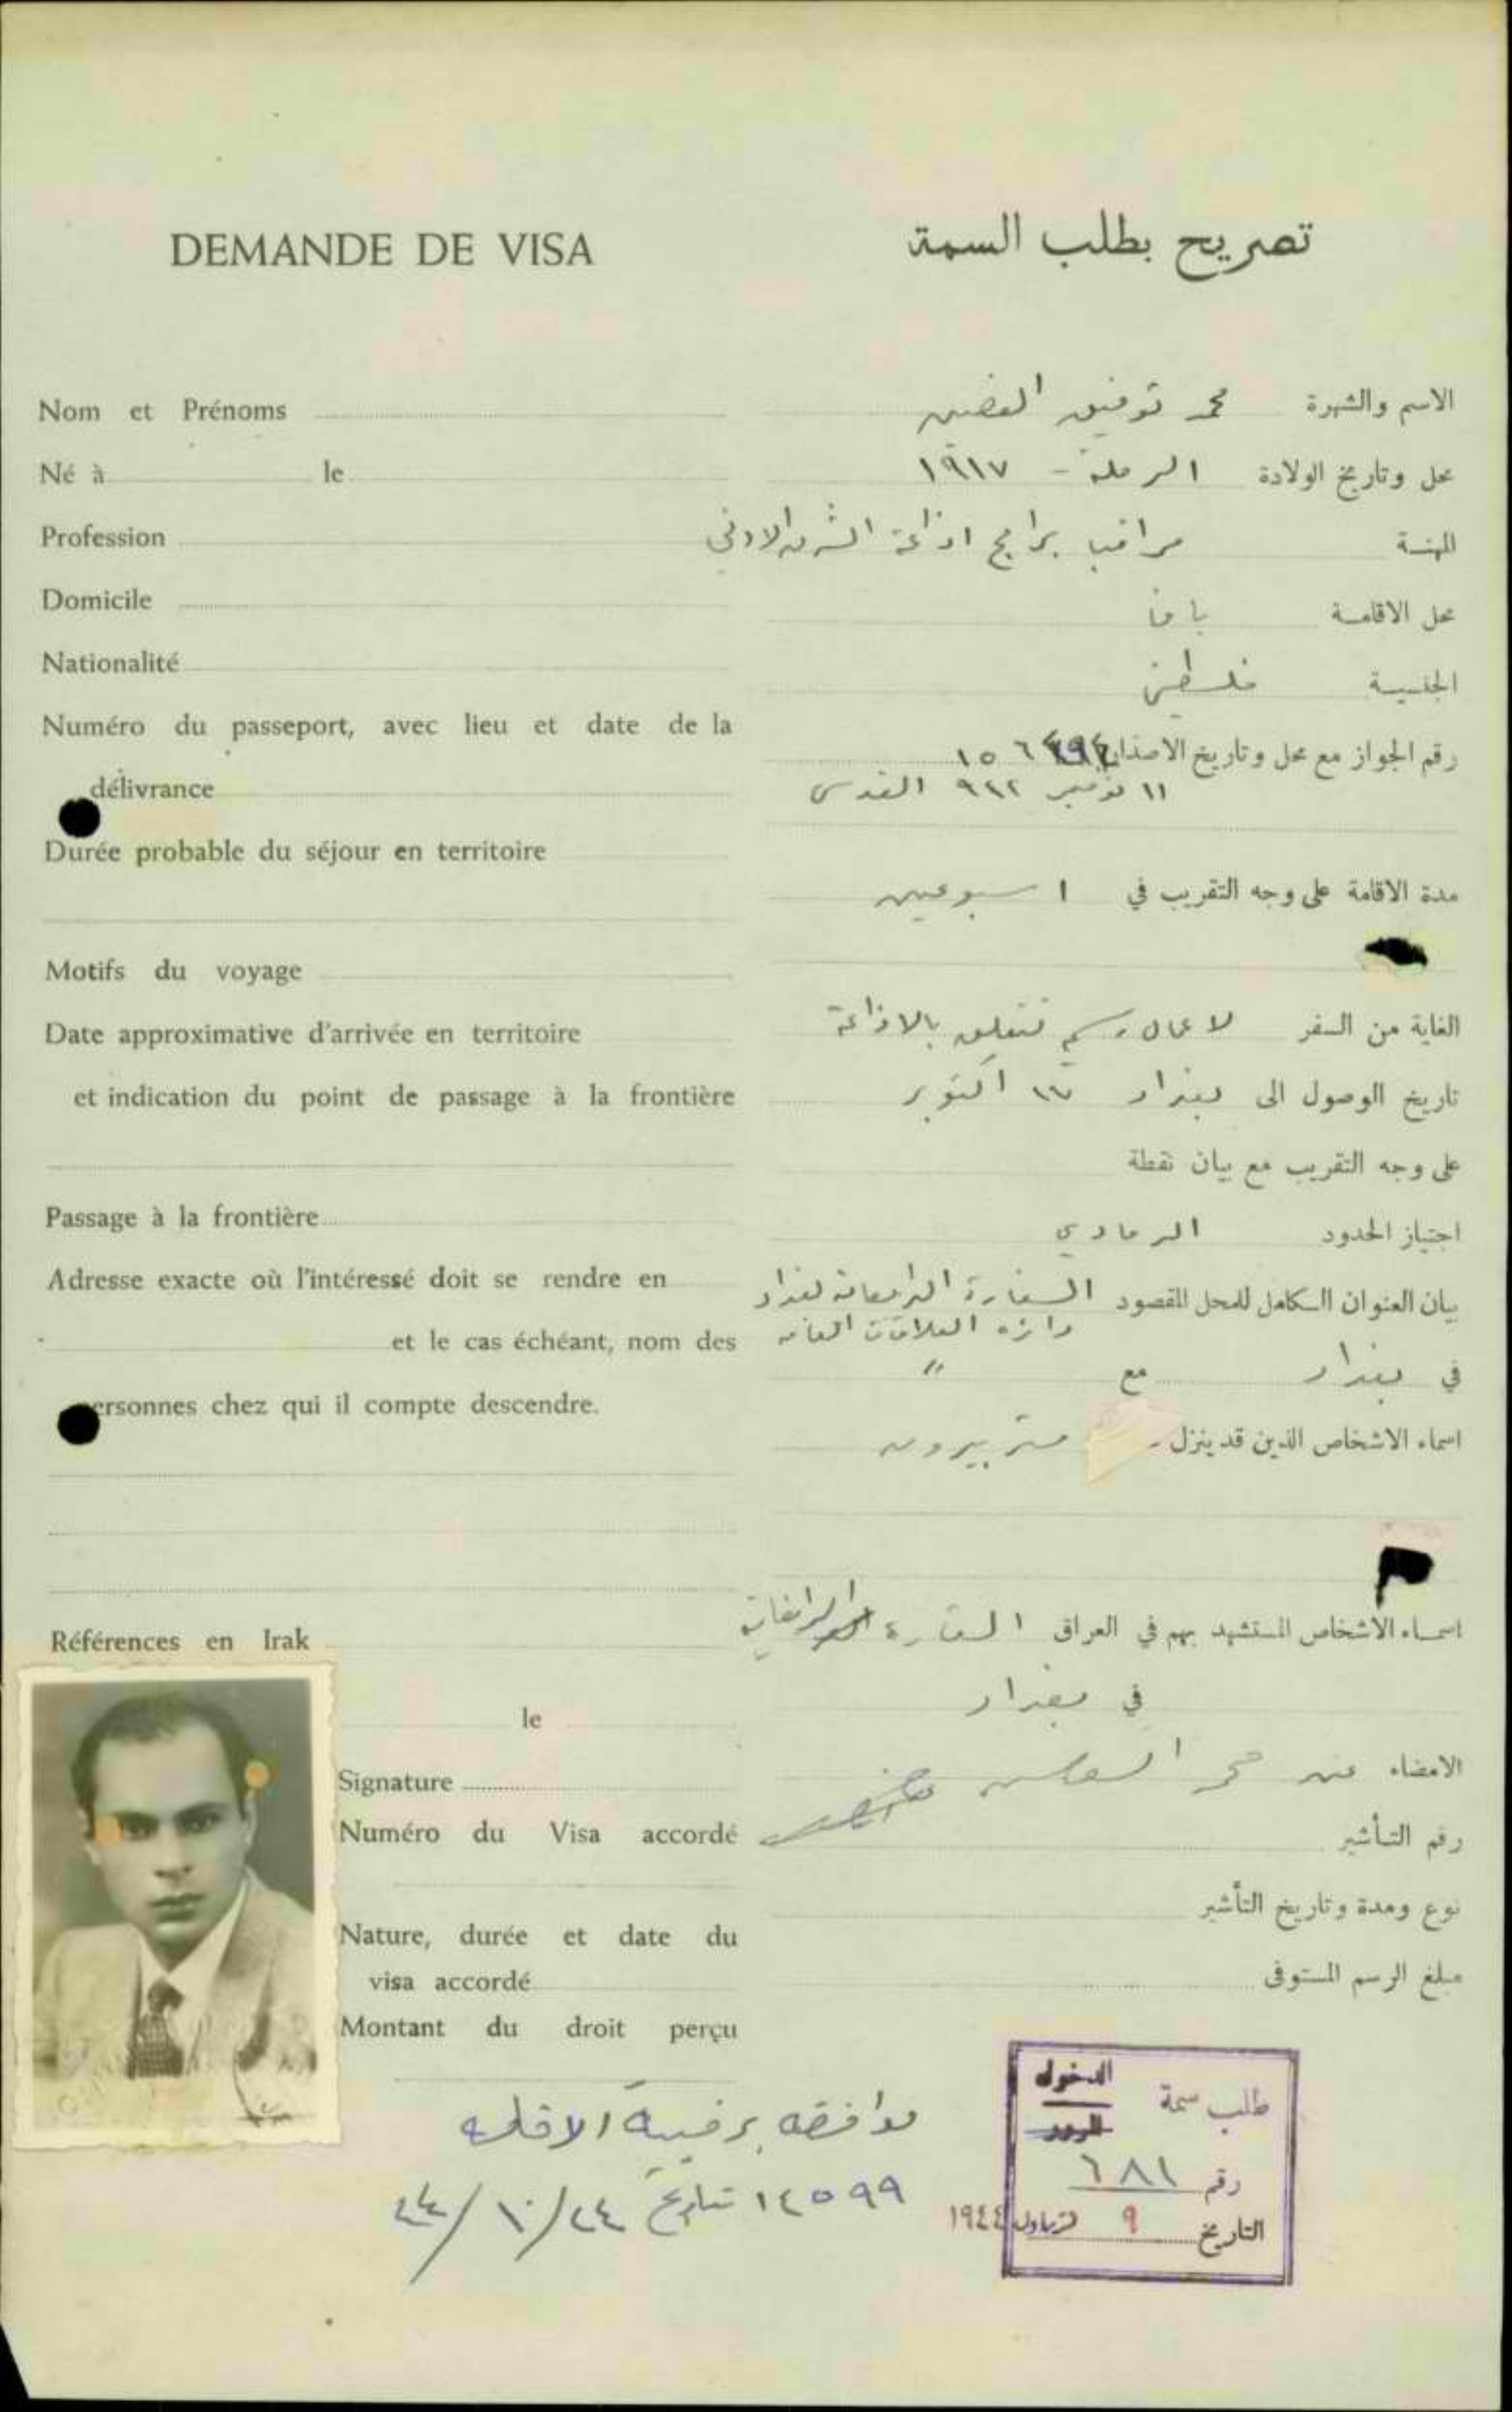 DEMANDE DE VISA
تصريح بطلب السمة
Nom et Prénoms
الاسم والشهرة محمد توفيق الغصين
Né à le
محل وتاريخ الولادة الرملة - ١٩١٧
Profession
المهنة مراقب برامج اذاعة الشرق الادنى
Domicile
محل الاقامة يافا
Nationalité
الجنسية فلسطيني
Numéro du passeport, avec lieu et date de la
délivrance
رقم الجواز مع محل وتاريخ الاصدار
١١ نوفمبر القدس
Durée probable du séjour en territoire
مدة الاقامة على وجه التقريب في اسبوعين
Motifs du voyage
الغاية من السفر لاعمال رسمية تتعلق بالاذاعة
Date approximative d'arrivée en territoire
et indication du point de passage à la frontière
تاريخ الوصول الى بغداد اكتوبر
على وجه التقريب مع بيان نقطة
Passage à la frontière
اجتياز الحدود الرمادي
Adresse exacte où l'intéressé doit se rendre en
بيان العنوان الكامل للمحل المقصود السفارة البريطانية بغداد
دائرة العلاقات العامة
et le cas échéant, nom des
في بغداد مع "
personnes chez qui il compte descendre.
اسماء الاشخاص الذين قد ينزل مستر
Références en Irak
اسماء الاشخاص المستشهد بهم في العراق السفارة البريطانية
في بغداد
le
Signature
الامضاء عن محمد الغصين
Numéro du Visa accordé
رقم التأشير
Nature, durée et date du
visa accordé
نوع ومدة وتاريخ التأشير
Montant du droit perçu
مبلغ الرسم المستوفى
طلب سمة الدخول
المرور
رقم ٦٨١
التاريخ ٩ ت اول ١٩٤٤
موافقة برقية الاقامة
١٤٥٩٩ تاريخ ٢٤/١٠/٤٤